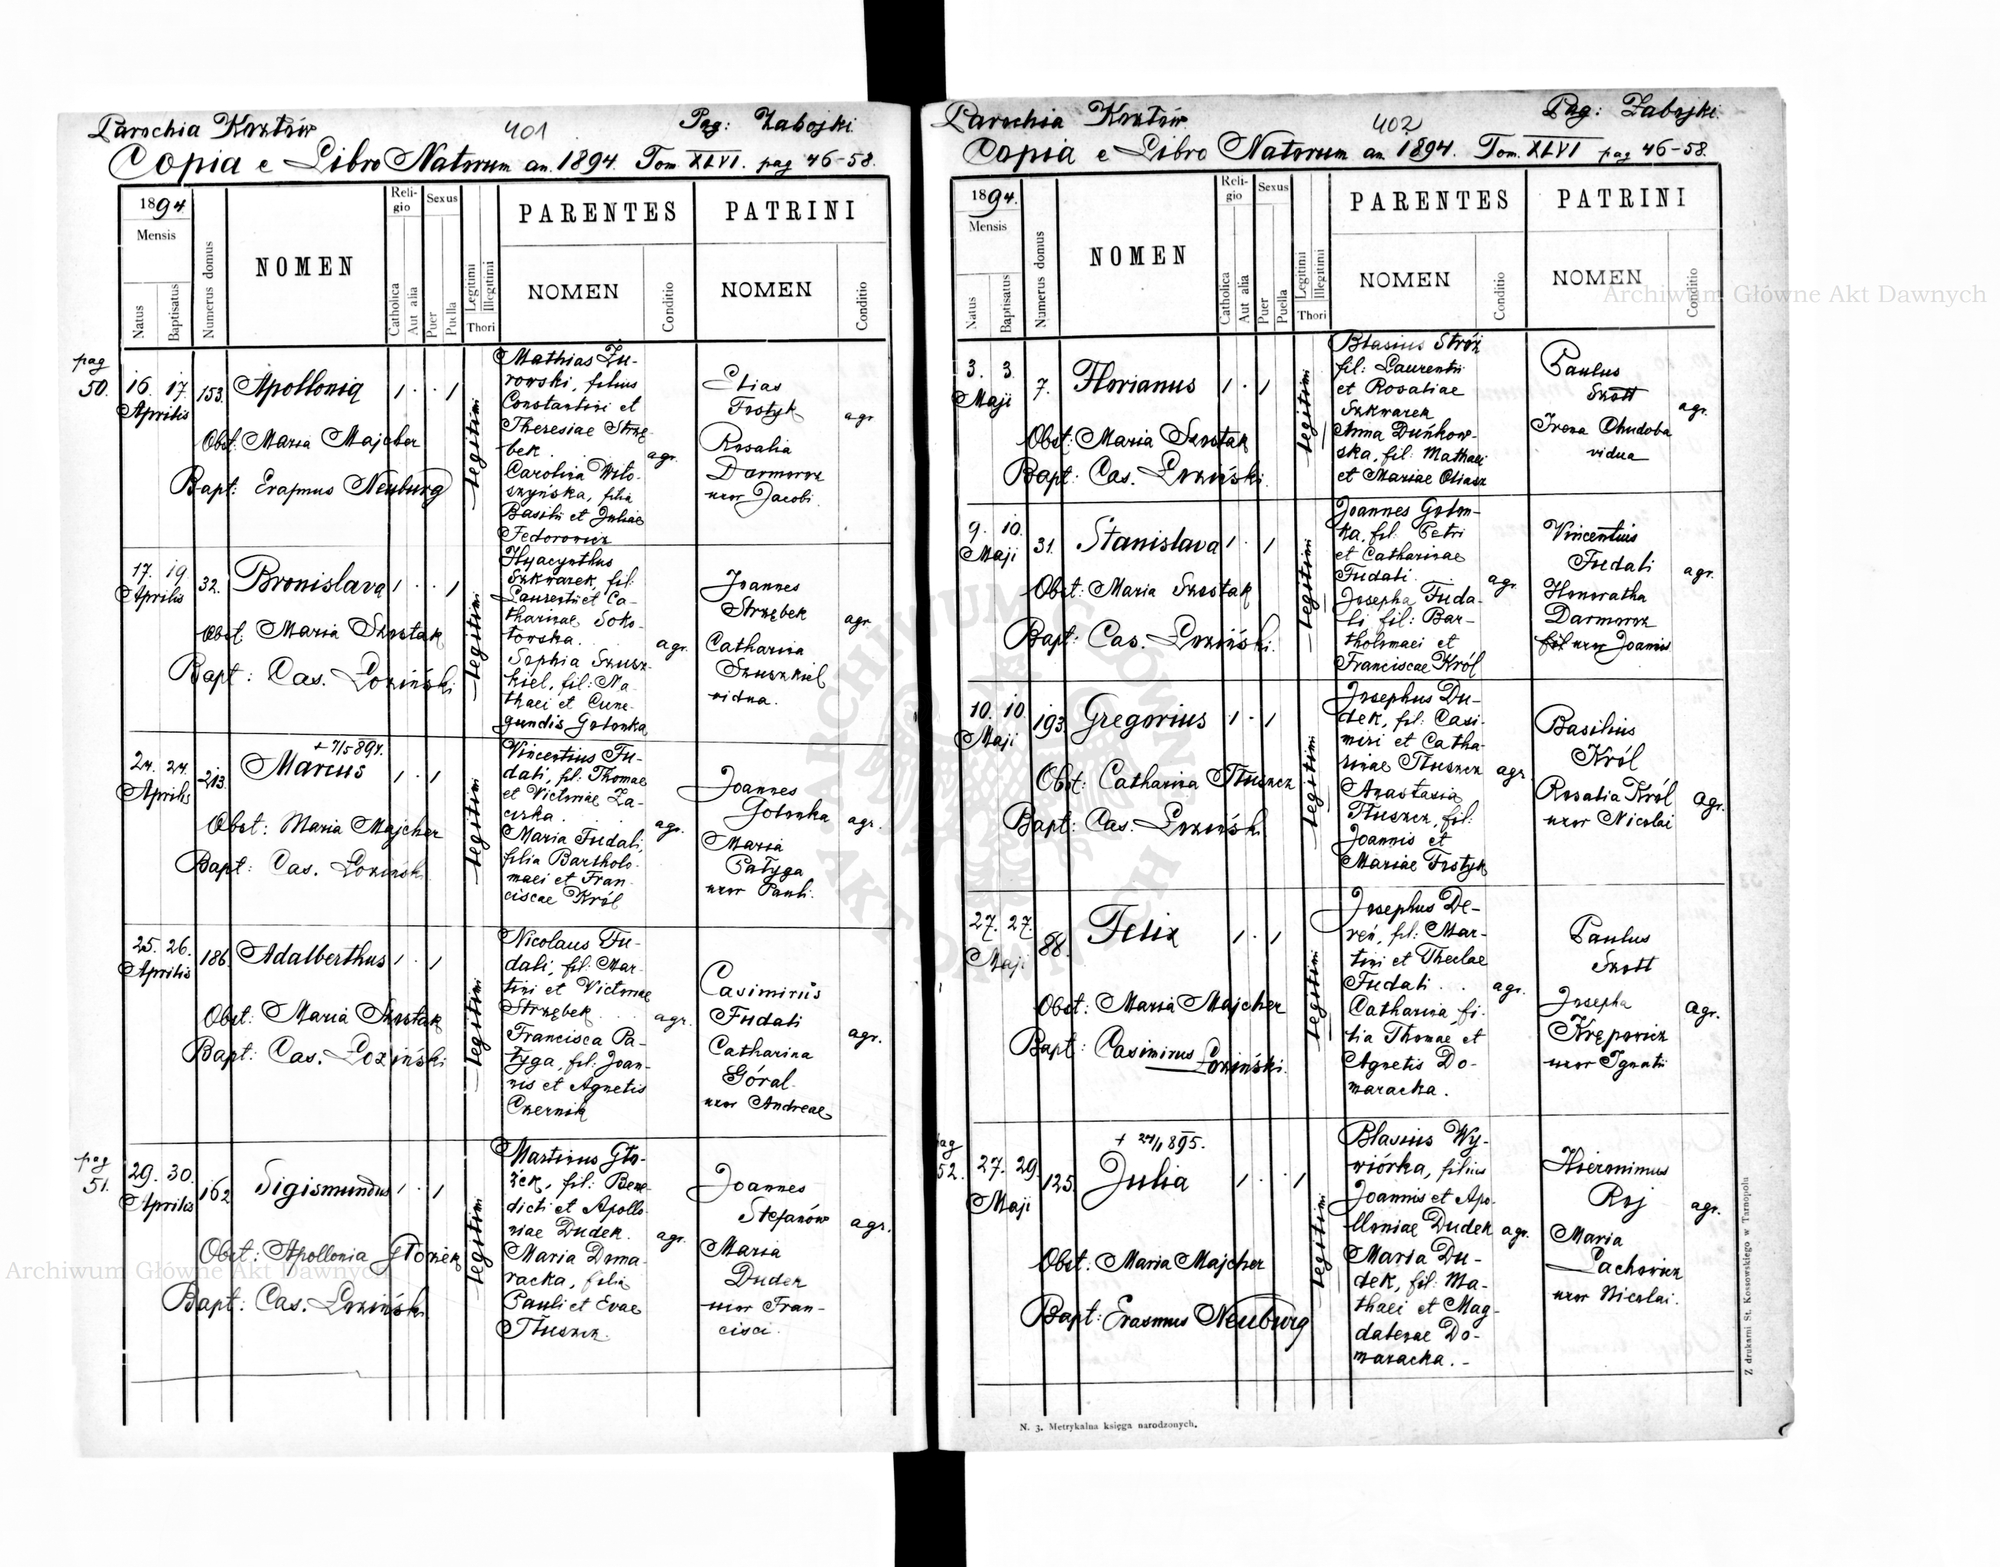 Parochia Kozłów
401
Pag: Zabojki
Copia e Libro Natorum an. 1894. Tom XLVI. pag 46-58.
1894.
Mensis
Natus
Baptisatus
Numerus domus
NOMEN
Religio
Catholica
Aut alia
Sexus
Puer
Puella
Legitimi
Illegitimi
Thori
PARENTES
NOMEN
Conditio
PATRINI
NOMEN
Conditio
pag
50.
16. 17.
Aprilis
153.
Apollonia
1 · · 1
Obst: Maria Majcher
Bapt: Erasmus Neuburg
legitimi
Mathias Żu-
rowski, filius
Constantini et
Theresiae Strzę-
bek
Carolina Wito-
szyńska, filia
Basilii et Juliae
Fedorowicz
agr.
Elias
Frotyk
Rosalia
Darmoroz
uxor Jacobi
agr
17. 19.
Aprilis
32.
Bronislava
1 · · 1
Obst: Maria Szostak
Bapt: Cas. Łoziński
legitimi
Hyacynthus
Szkwarek, fil:
Laurentii et Ca-
tharinae Soko-
łowska.
Sophia Szusz-
kiel, fil: Ma-
thaei et Cune-
gundis Gołonka
agr.
Joannes
Strzębek
Catharina
Szuszkiel
vidua.
agr.
24. 24.
Aprilis
213.
+ 7/5 894.
Marcus
1 · 1
Obst: Maria Majcher
Bapt: Cas. Łoziński
legitimi
Vincentius Fu-
dali, fil: Thomae
et Victoriae Za-
Maria Fudali,
filia Bartholo-
maei et Fran-
ciscae Król
agr.
Joannes
Gołonka
Maria
Pałyga
uxor Pauli.
agr.
25. 26.
Aprilis
186.
Adalberthus
1 · 1
Obst: Maria Szostak
Bapt: Cas. Łoziński
legitimi
Nicolaus Fu-
dali, fil: Mar-
tini et Victoriae
Strzębek
Francisca Pa-
łyga, fil: Joan-
nis et Agnetis
Czernik
agr.
Casimirus
Fudali
Catharina
Góral
uxor Andreae
agr.
pag
51.
29. 30.
Aprilis
162
Sigismundus
1 · 1
Obst: Apollonia Głozek
Bapt: Cas. Łoziński
legitimi
Martinus Gło-
żek, fil: Bene-
dicti et Apollo-
niae Dudek.
Maria Doma-
racka, filia
Pauli et Evae
Tłuszcz.
agr.
Joannes
Stefanów
Maria
Dudek
uxor Fran-
cisci.
agr.
Parochia Kozłów
402
Pag: Zabojki
Copia e Libro Natorum an. 1894. Tom. XLVI pag 46-58.
1894.
Mensis
Natus
Baptisatus
Numerus domus
NOMEN
Religio
Catholica
Aut alia
Sexus
Puer
Puella
Legitimi
Illegitimi
Thori
PARENTES
NOMEN
Conditio
PATRINI
NOMEN
Conditio
3. 3.
Maji
7.
Florianus
1 · 1
Obst: Maria Szostak
Bapt: Cas. Łoziński
legitimi
Blasius Stróż
fil: Laurentii
et Rosaliae
Szkwarek
Anna Duńkow-
ska, fil: Mathaei
et Mariae Oliasz
Paulus
Szott
Irena Chudoba
vidua
agr.
9. 10.
Maji
31.
Stanislava
1 · 1
Obst: Maria Szostak
Bapt: Cas. Łoziński.
legitimi
Joannes Gołon-
ka, fil: Petri
et Catharinae
Fudali.
Josepha Fuda-
li fil: Bar-
tholomaei et
Franciscae Król
agr.
Vincentius
Fudali
Honoratha
Darmoroz
fil uxor Joannis
agr.
10. 10.
Maji
193.
Gregorius
1 · 1
Obst: Catharina Tłuszcz
Bapt: Cas. Łoziński
legitimi
Josephus Du-
dek, fil: Casi-
miri et Catha-
rinae Tłuszcz
Anastasia
Tłuszcz, fil:
Joannis et
Mariae Frotyk
agr.
Basilius
Król
Rosalia Król
uxor Nicolai
agr.
27. 27.
Maji
88.
Felix
1 · 1
Obst: Maria Majcher
Bapt: Casimirus Łoziński.
legitimi
Josephus De-
reń, fil: Mar-
tini et Theclae
Fudali
Catharina fi-
lia Thomae et
Agnetis Do-
maracka.
agr.
Paulus
Szott
Josepha
Krępowicz
uxor Ignatii
agr.
pag
52.
27. 29.
Maji
125.
+ 24/1 895.
Julia
1 · 1
Obst: Maria Majcher
Bapt: Erasmus Neuburg
legitimi
Blasius Wy-
wiórka, filius
Joannis et Apo-
lloniae Dudek
Maria Du-
dek, fil: Ma-
thaei et Mag-
dalenae Do-
maracka. -
agr.
Hieronimus
Roj
Maria
Lachowicz
uxor Nicolai.
agr.
N. 3. Metrykalna księga narodzonych.
Z drukarni St. Kossowskiego w Tarnopolu
Archiwum Główne Akt Dawnych
Archiwum Główne Akt Dawnych
ARCHIWUM GŁÓWNE AKT DAWNYCH